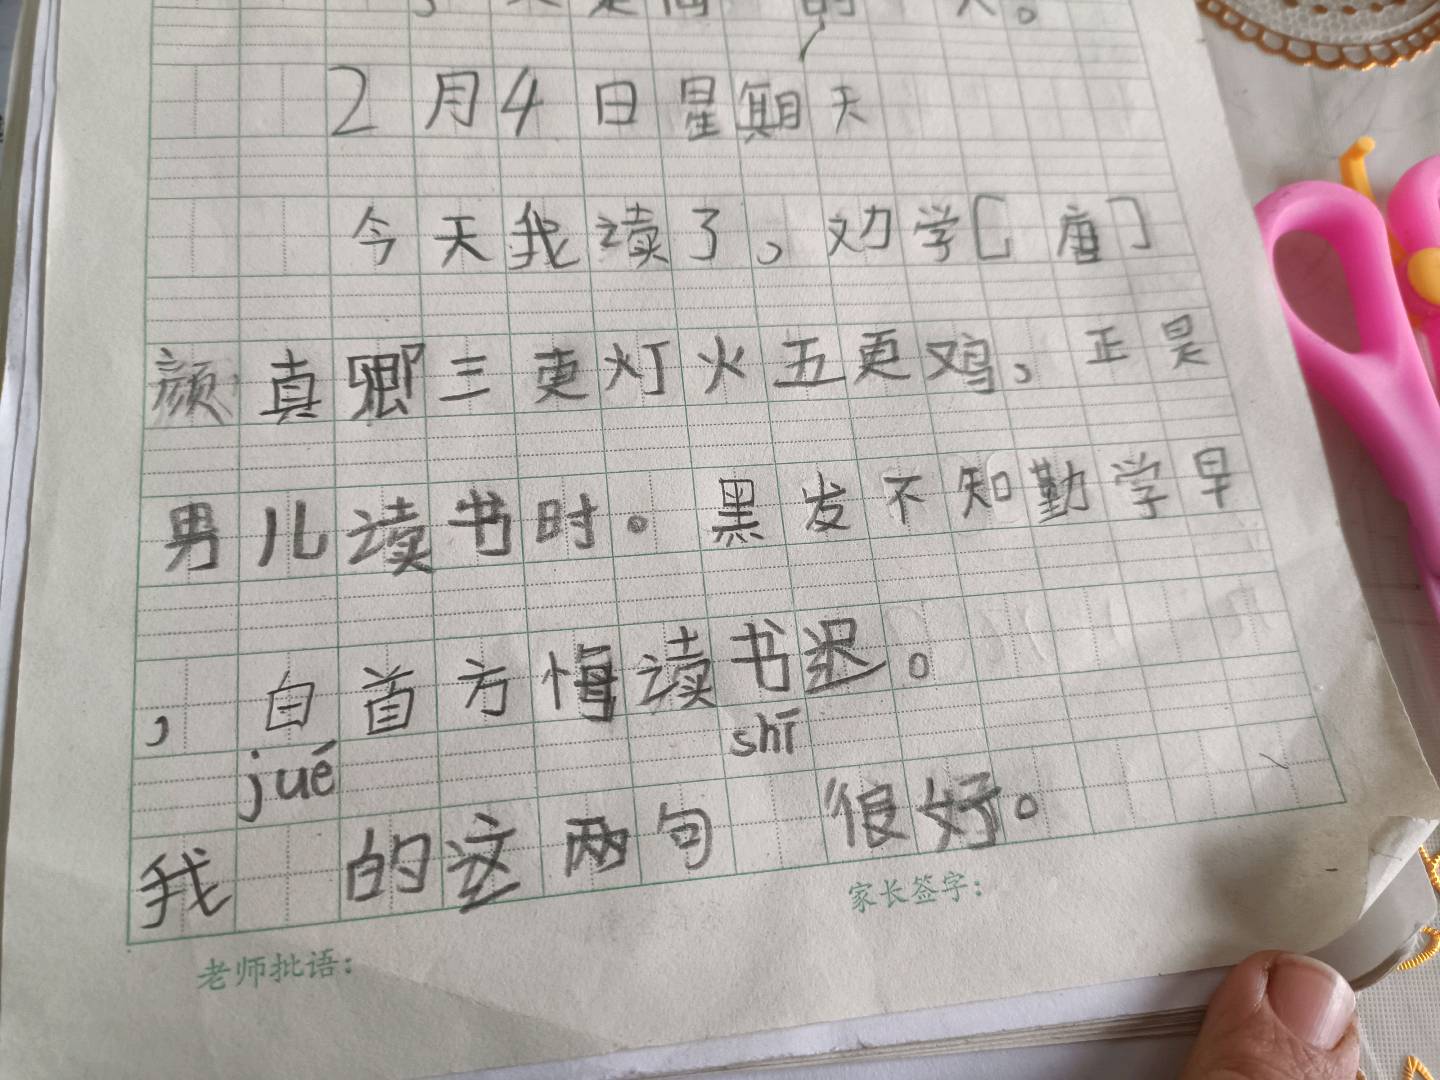 2月4日星期天
今天我读了,劝学[唐]
颜真卿三更灯火五更鸡,正是
男儿读书时。黑发不知勤学早
,白首方悔读书迟。
jué shī
我 的这两句 很好。
家长签字:
老师批语: